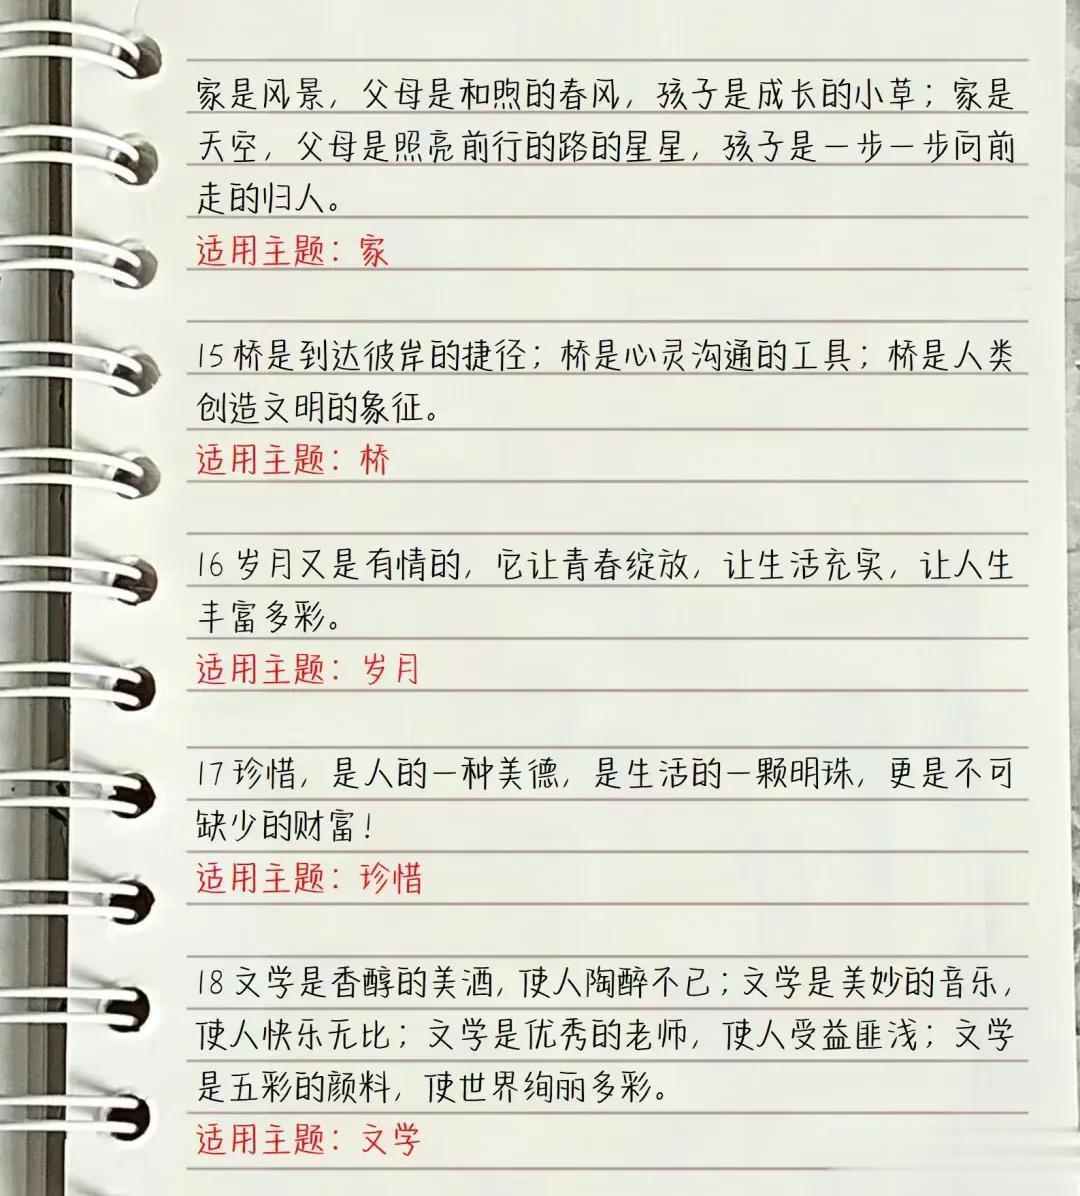 家是风景，父母是和煦的春风，孩子是成长的小草；家是
天空，父母是照亮前行的路的星星，孩子是一步一步向前
走的归人。
适用主题：家
15 桥是到达彼岸的捷径；桥是心灵沟通的工具；桥是人类
创造文明的象征。
适用主题：桥
16 岁月又是有情的，它让青春绽放，让生活充实，让人生
丰富多彩。
适用主题：岁月
17 珍惜，是人的一种美德，是生活的一颗明珠，更是不可
缺少的财富！
适用主题：珍惜
18 文学是香醇的美酒，使人陶醉不已；文学是美妙的音乐，
使人快乐无比；文学是优秀的老师，使人受益匪浅；文学
是五彩的颜料，使世界绚丽多彩。
适用主题：文学